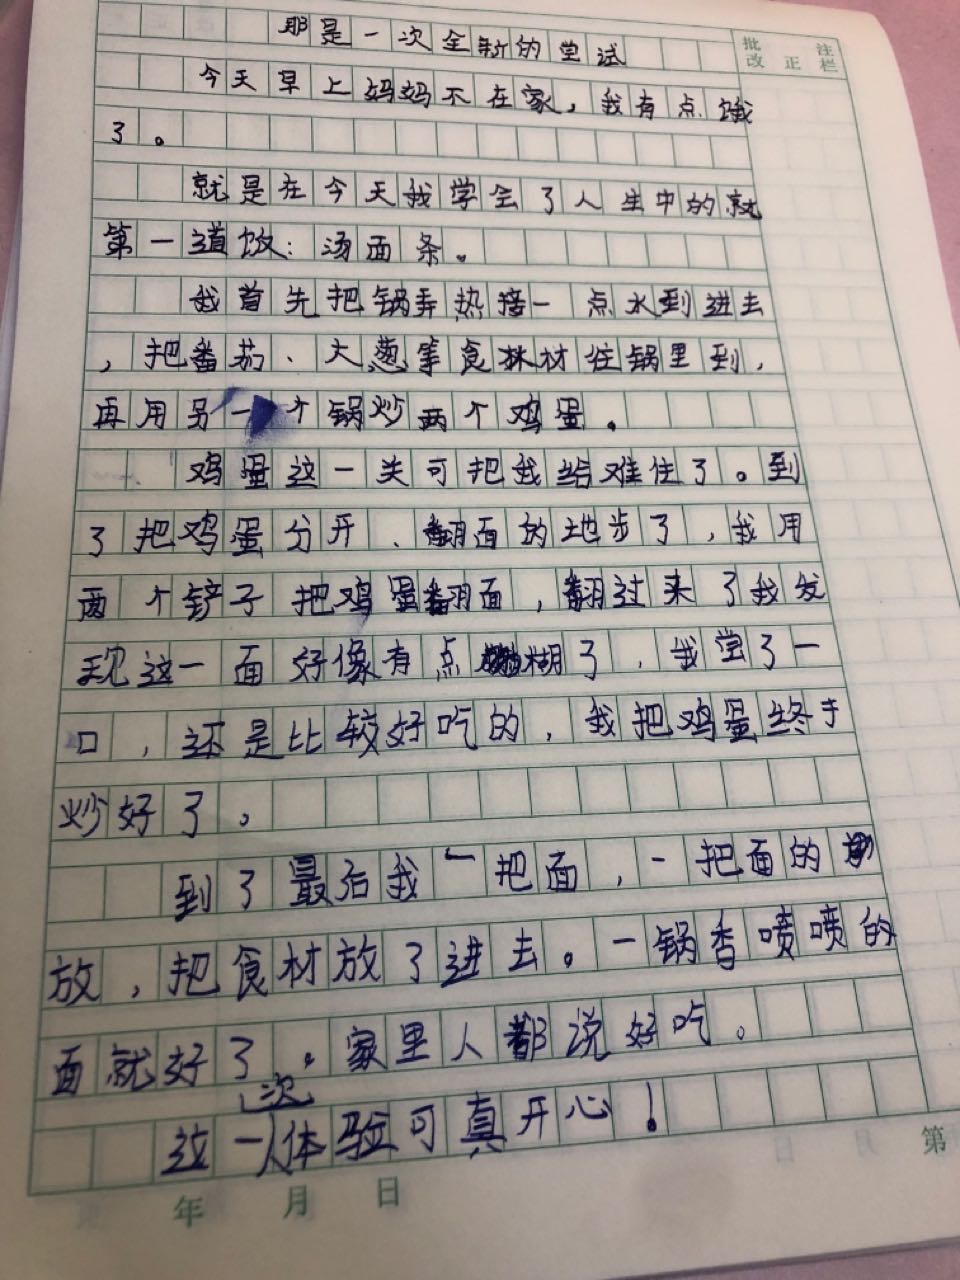 那是一次全新的尝试
批注
改正栏
今天早上妈妈不在家，我有点饿
了。
就是在今天我学会了人生中的就
第一道饭：汤面条。
我首先把锅弄热接一点水到进去
，把番茄、大葱等食材往锅里到，
再用另一个锅炒两个鸡蛋。
鸡蛋这一关可把我给难住了。到
了把鸡蛋分开、翻面的地步了，我用
两个铲子把鸡蛋翻面，翻过来了我发
现这一面好像有点糊了，我尝了一
口，还是比较好吃的，我把鸡蛋终于
炒好了。
到了最后我一把面，一把面的
放，把食材放了进去。一锅香喷喷的
面就好了。家里人都说好吃。
这一次体验可真开心！
年 月 日
第